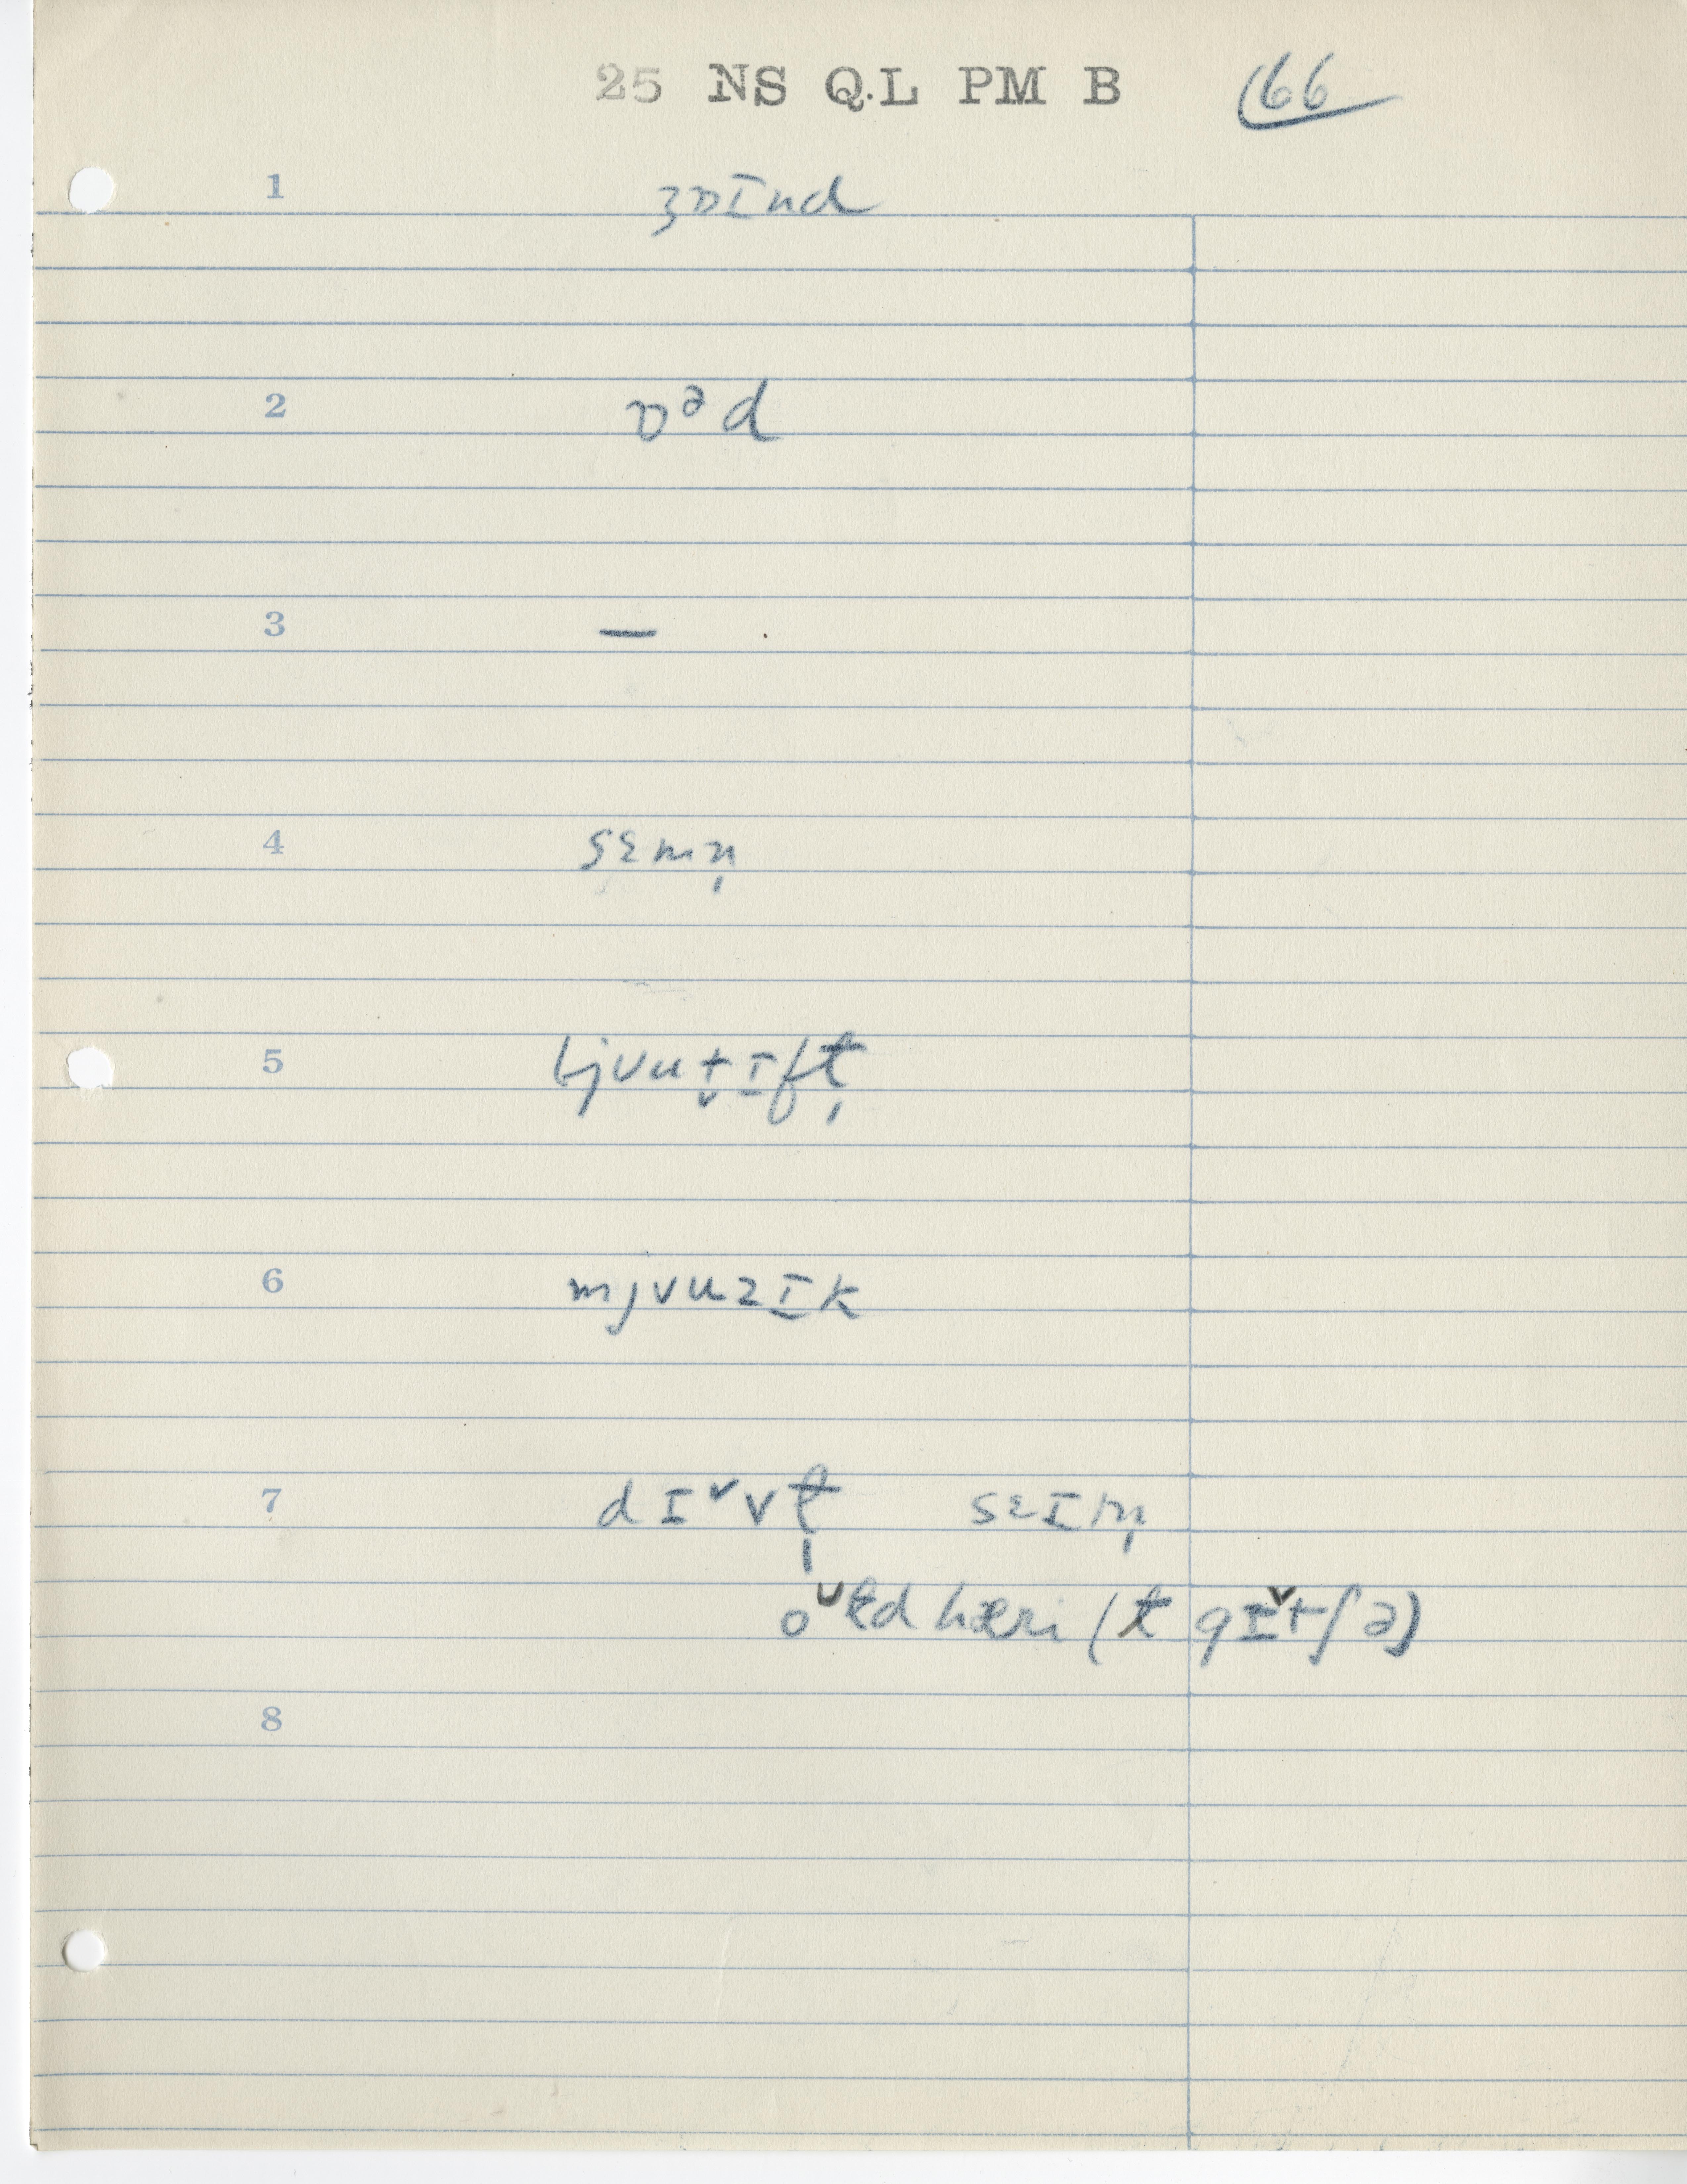 25 NS Q.L PM B 166
1 ʒɒɪnd
2 ɒᵊd
3 —
4 sɛmn̩
5 bjʌut̬ɪfɫ̩
6 mjʌuzɪk
7 dɪˇvɫ̩ sɛɪtn̩
oᵘɫd hæri (ɫ gɪˇtʃə)
8